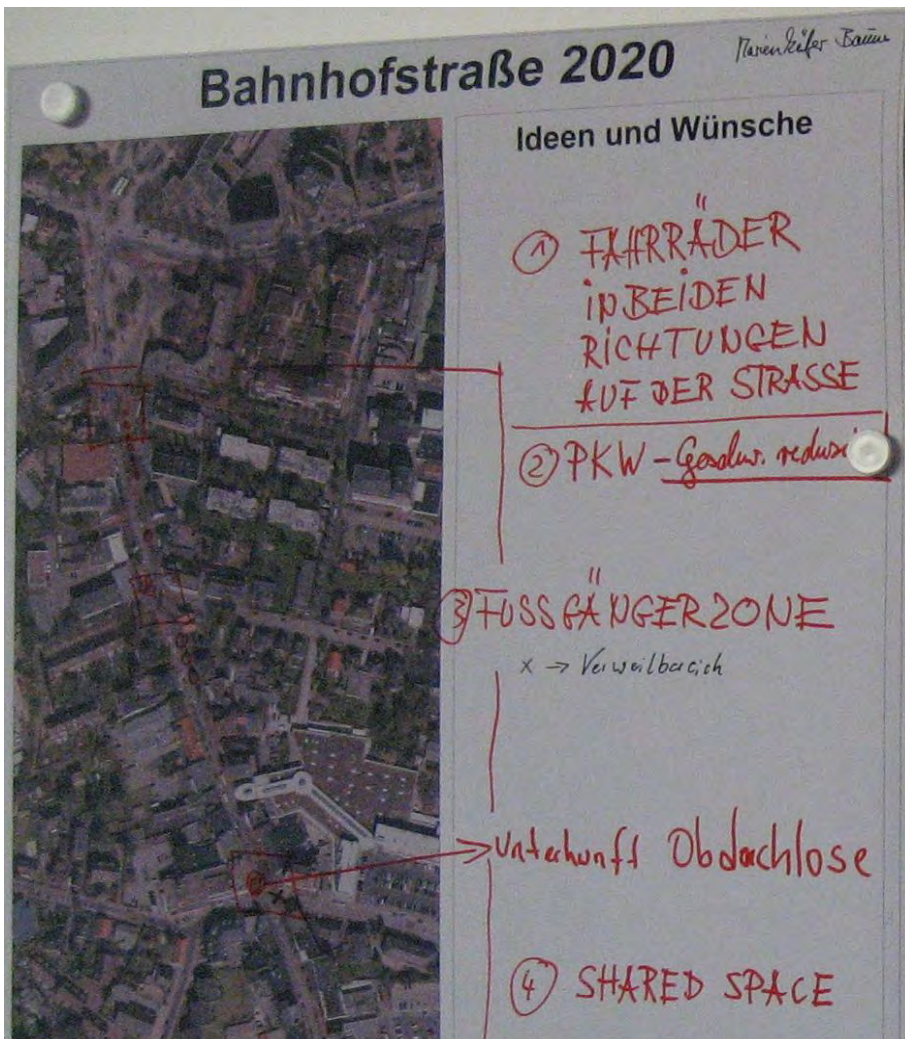 Bahnhofstraße 2020
Marienkäfer Bäume
Ideen und Wünsche
① FAHRRÄDER
IN BEIDEN
RICHTUNGEN
AUF DER STRASSE
② PKW - Geschw.
③ FUSSGÄNGERZONE
x → Verweilbereich
Unterkunft Obdachlose
④ SHARED SPACE